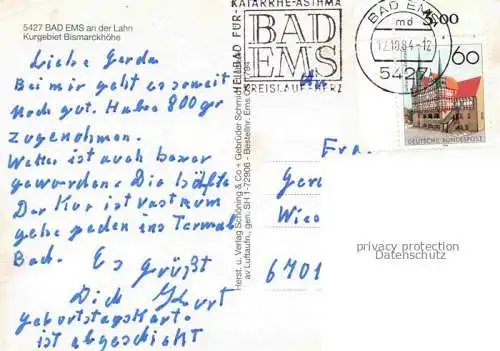 5427 BAD EMS an der Lahn
Kurgebiet Bismarckhöhe
Liebe Gerda
Bei mir geht es soweit
noch gut. Habe 800 gr
zugenohmen.
Wetter ist auch besser
geworden. Die Häfte
Der Kur ist vast rum
gehe jeden ins Termal
Bad. Es grüßt
Dich Kurt
Geburtstagskart.
ist abgeschickt
Herst. u. Verlag Schöning & Co + Gebrüder Schmidt
av Luftaufn., gen. SH 1-72906 - Bestellnr. Ems
HEILBAD FÜR
KATARRHE-ASTHMA
BAD
EMS
KREISLAUF-HERZ
BAD EMS
md
12.10.84-12
5427
5,00
60
DEUTSCHE BUNDESPOST
An
Fra
Ger
Wies
6701
privacy protection
Datenschutz